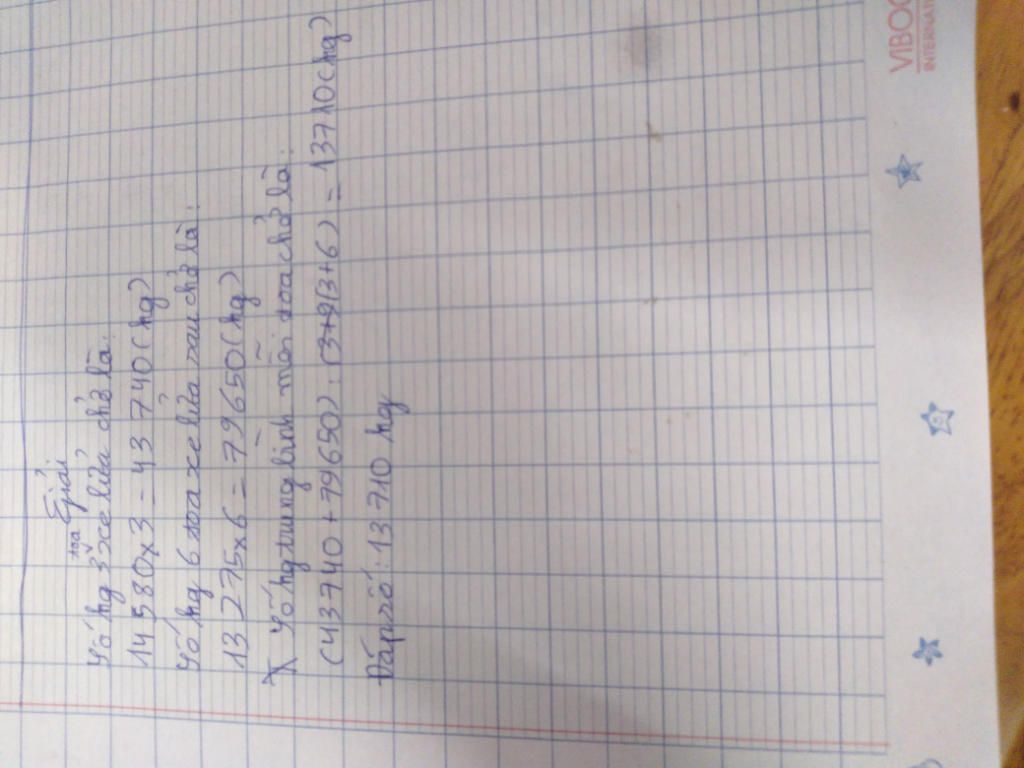 Giải
Số kg 3 toa xe lửa chở là:
14 580 x 3 = 43 740 (kg)
Số kg 6 toa xe lửa sau chở là:
13 275 x 6 = 79 650 (kg)
Số kg trung bình mỗi toa chở là:
(43740 + 79650) : (3+9(3+6) = 13710 (kg)
Đáp số: 13 710 kg
VIBOO
INTERNATI